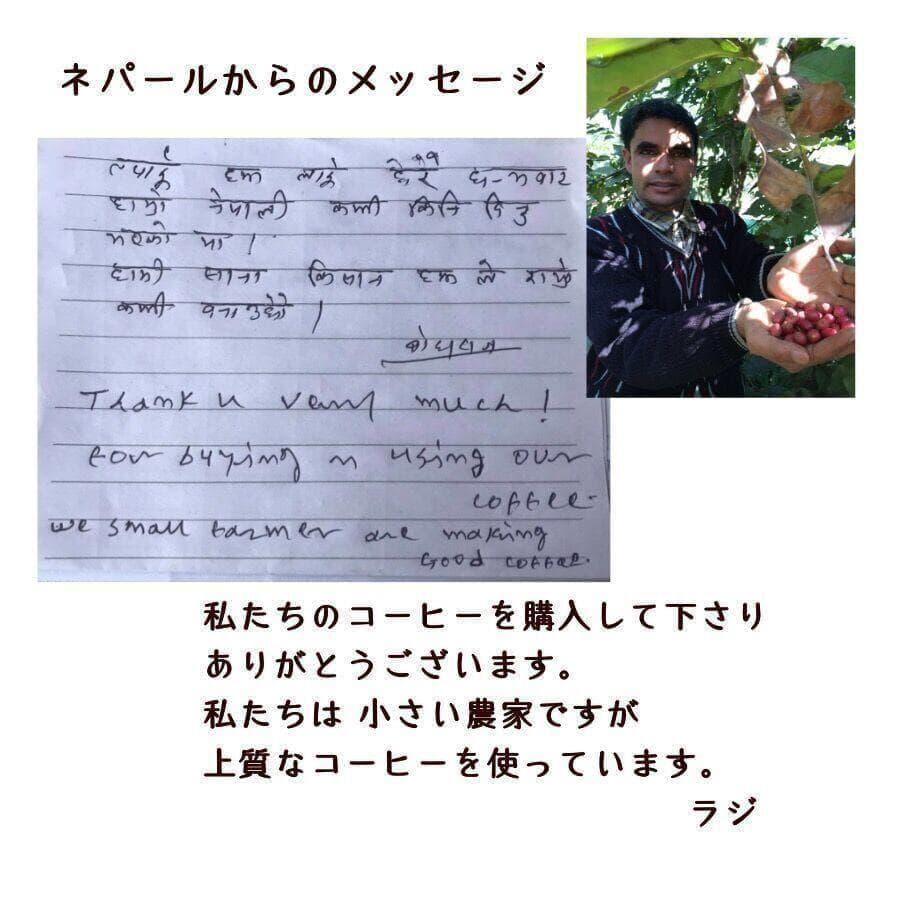 ネパールからのメッセージ
तपाईं हरू लाई धेरै धन्यवाद
हाम्रो नेपाली कफी किनि दिनु
भएको मा ।
हामी साना किसान हरू ले राम्रो
कफी बनाउछौ ।
Thank u very much!
For buying n using our
coffee.
we small farmer are making
Good coffee.
私たちのコーヒーを購入して下さり
ありがとうございます。
私たちは 小さい農家ですが
上質なコーヒーを使っています。
ラジ